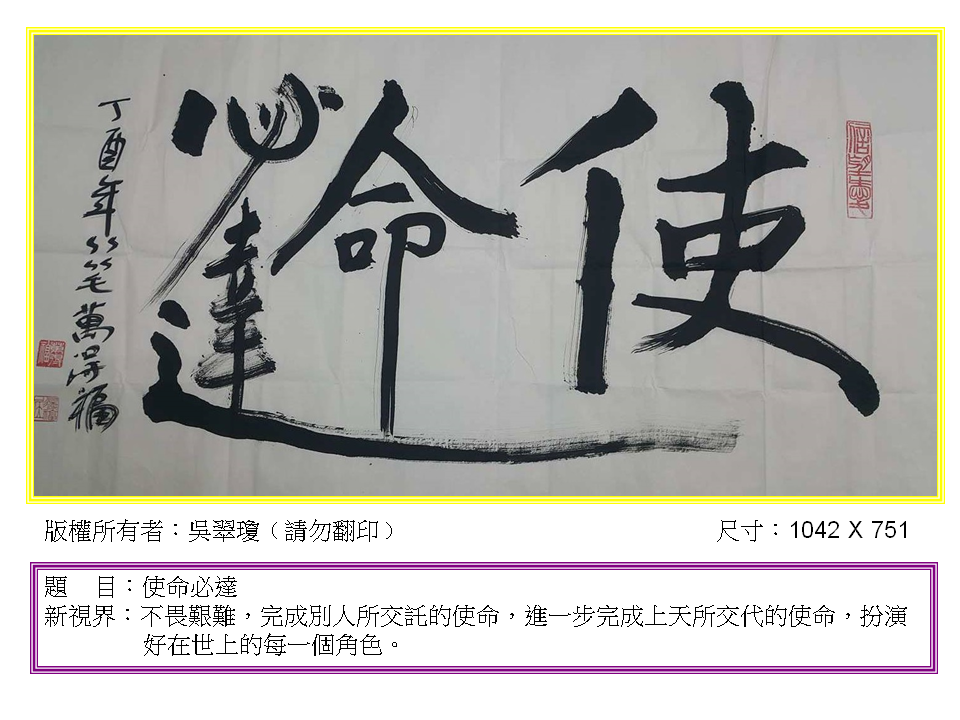 使命必達
丁酉年竹笔萬得福
版權所有者：吳翠瓊（請勿翻印）
尺寸：1042 X 751
題　目：使命必達
新視界：不畏艱難，完成別人所交託的使命，進一步完成上天所交代的使命，扮演
好在世上的每一個角色。